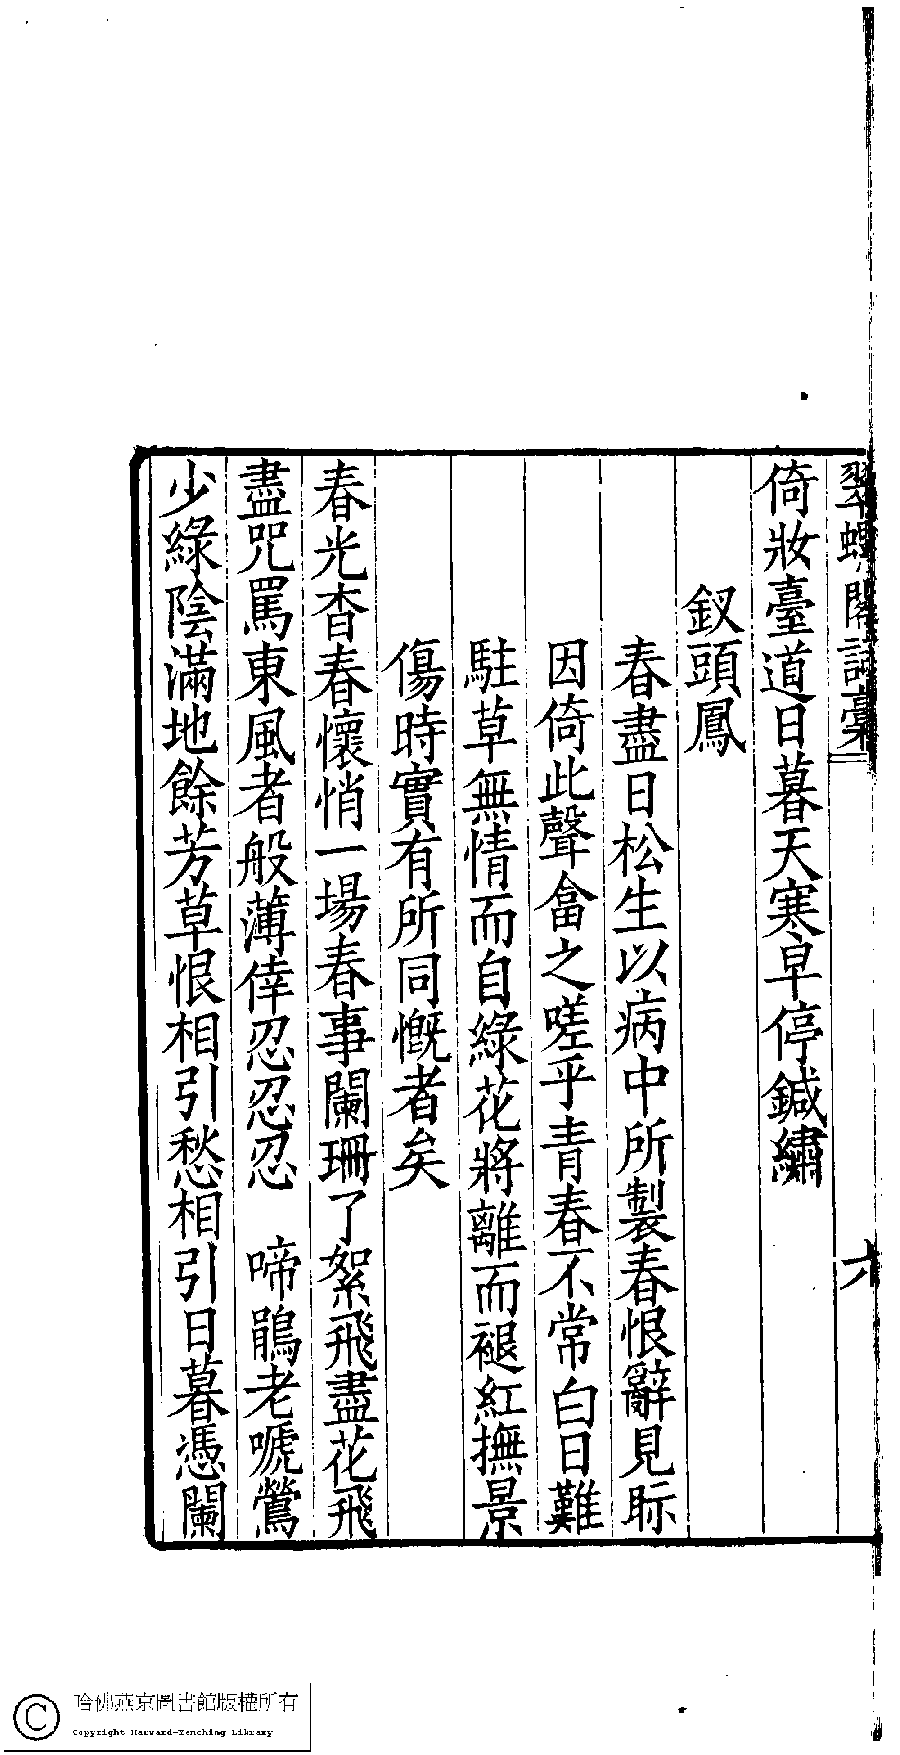 翠螺閣詞稾 六
倚妝臺道日暮天寒早停鍼繡
釵頭鳳
春盡日松生以病中所製春恨辭見眎
因倚此聲畣之嗟乎青春不常白日難
駐草無情而自綠花將離而褪紅撫景
傷時實有所同慨者矣
春光杳春懷悄一場春事闌珊了絮飛盡花飛
盡咒罵東風者般薄倖忍忍忍　啼鵑老嗁鶯
少綠陰滿地餘芳草恨相引愁相引日暮憑闌
哈佛燕京圖書館版權所有
Copyright Harvard-Yenching Library